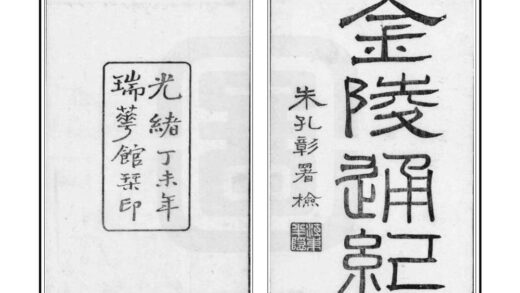 金陵通紀
朱孔彰署檢
光緒丁未年
瑞華館栞印